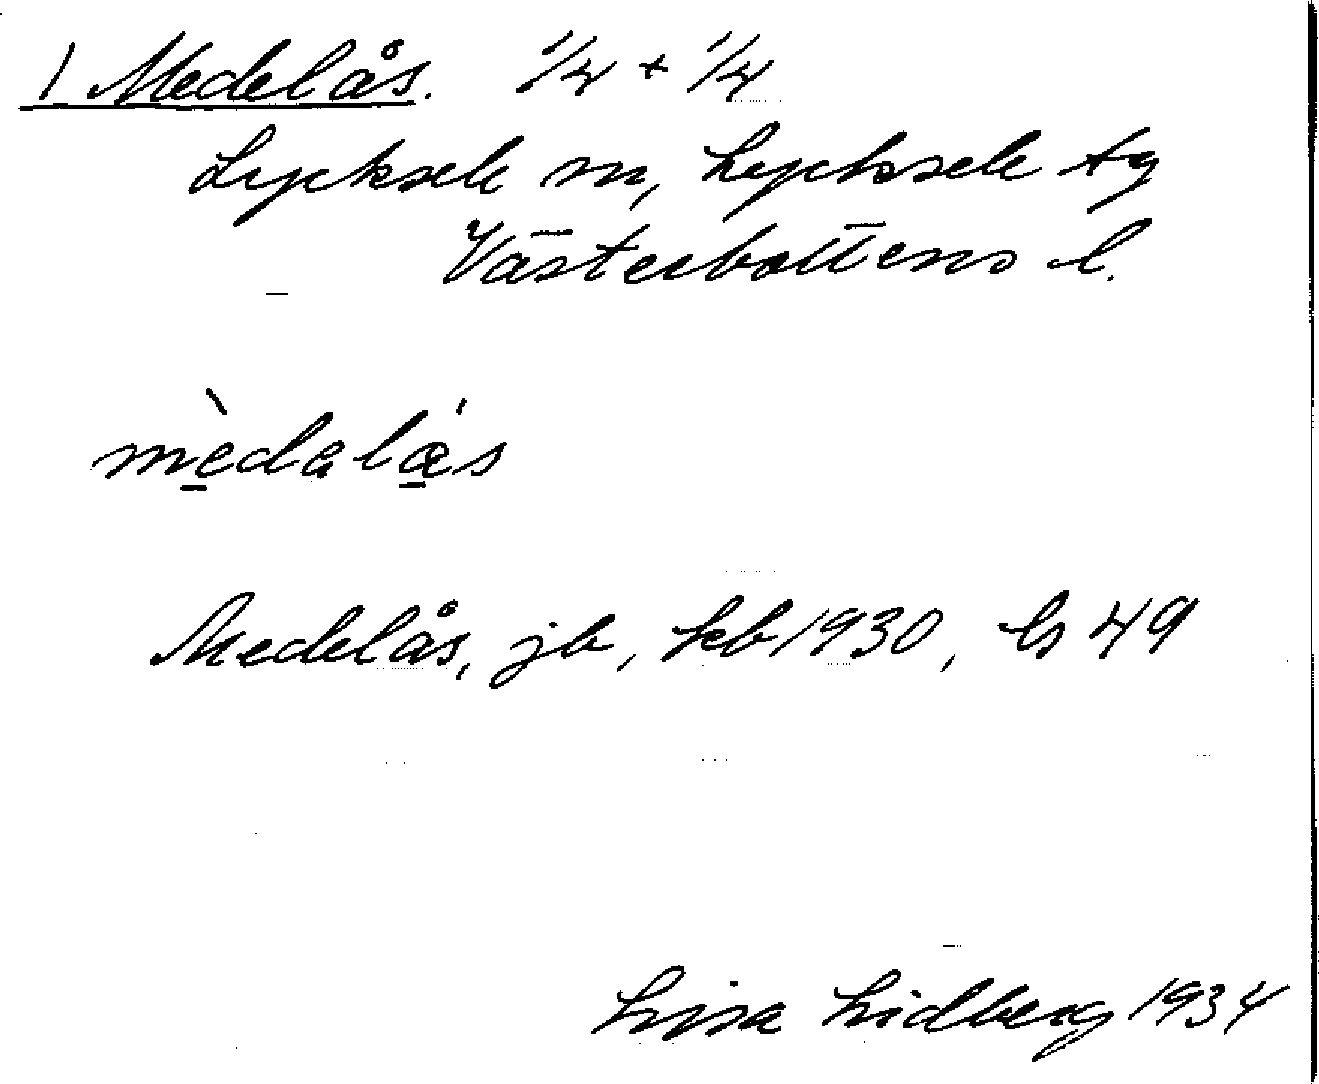 1 Medelås. 1/4 + 1/4
Lycksele m, Lycksele tg
Västerbottens l.
mèdalǻs
Medelås, jb, kb 1930, ls 49
Lisa Lidberg 1934